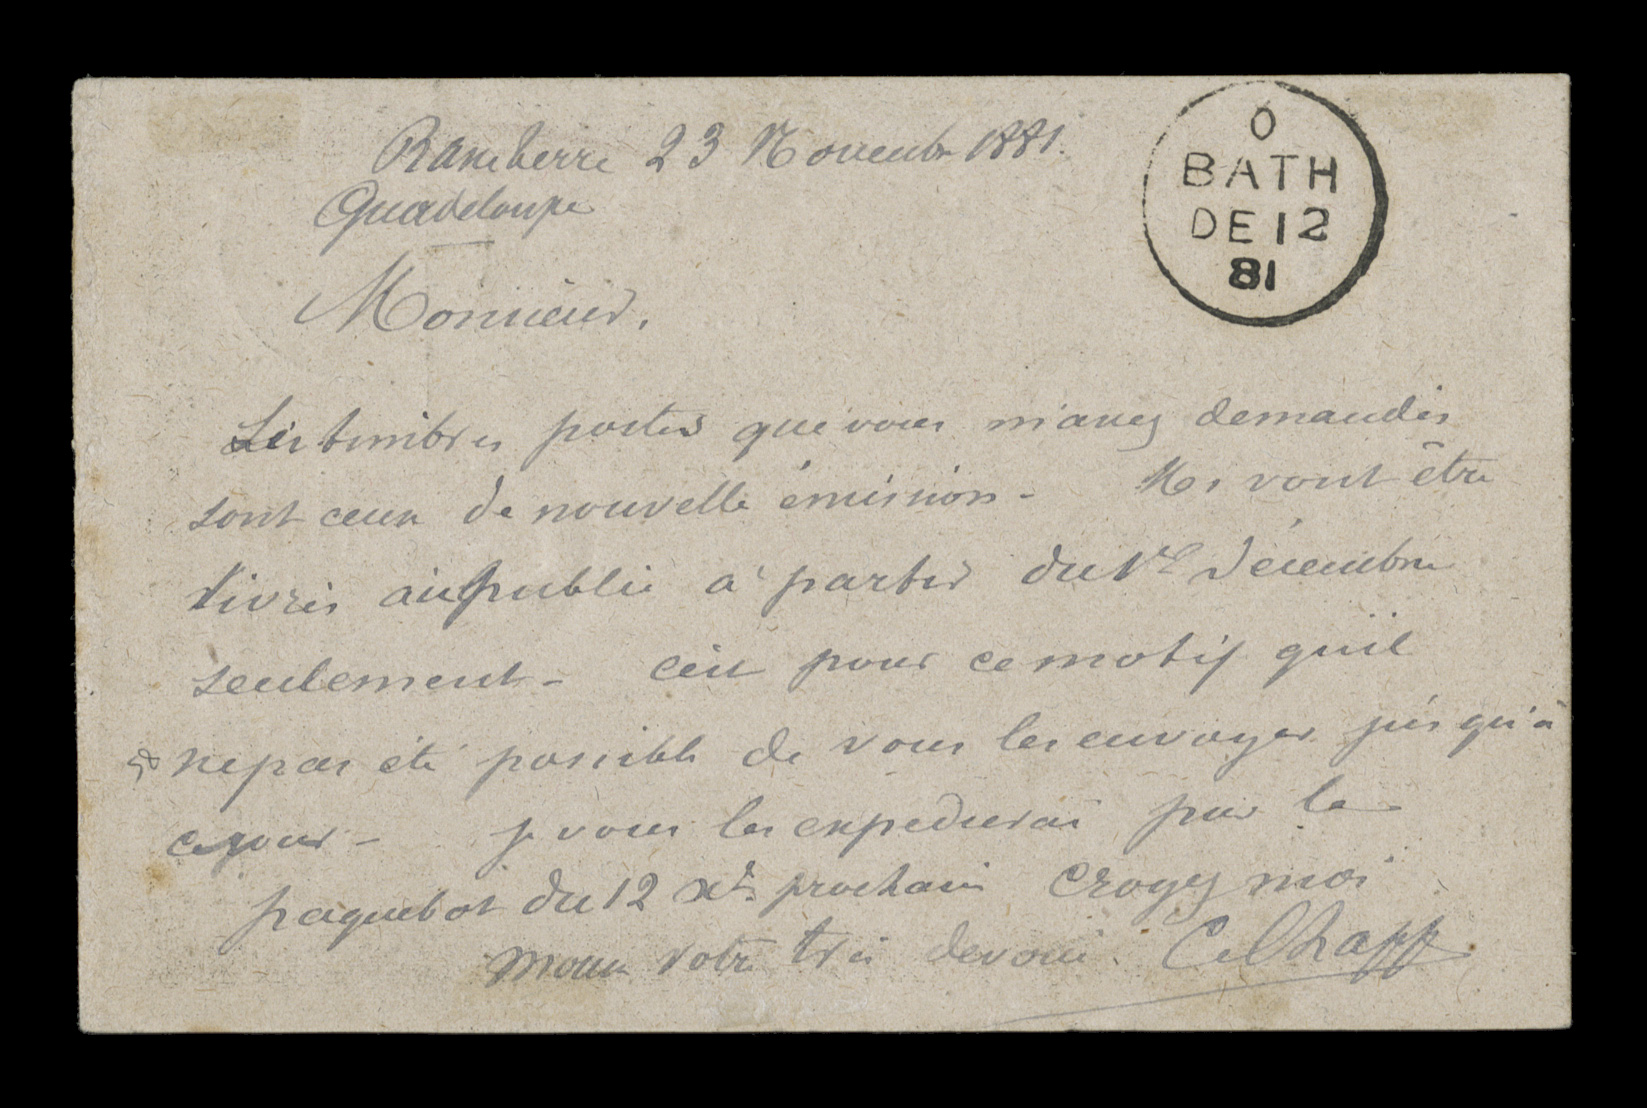 23 Novembre 1881.
Guadeloupe
O
BATH
DE 12
81
Monsieur,
Les timbres postes que vous m'avez demandés
sont ceux de nouvelle émission - Ils vont être
livrés au public à partir du 1er Décembre
seulement - C'est pour ce motif qu'il
ne pas été possible de vous les envoyer jusqu'à
ce jour - Je vous les expedierai par le
paquebot du 12 Xbre prochain Croyez moi
votre très devoué.